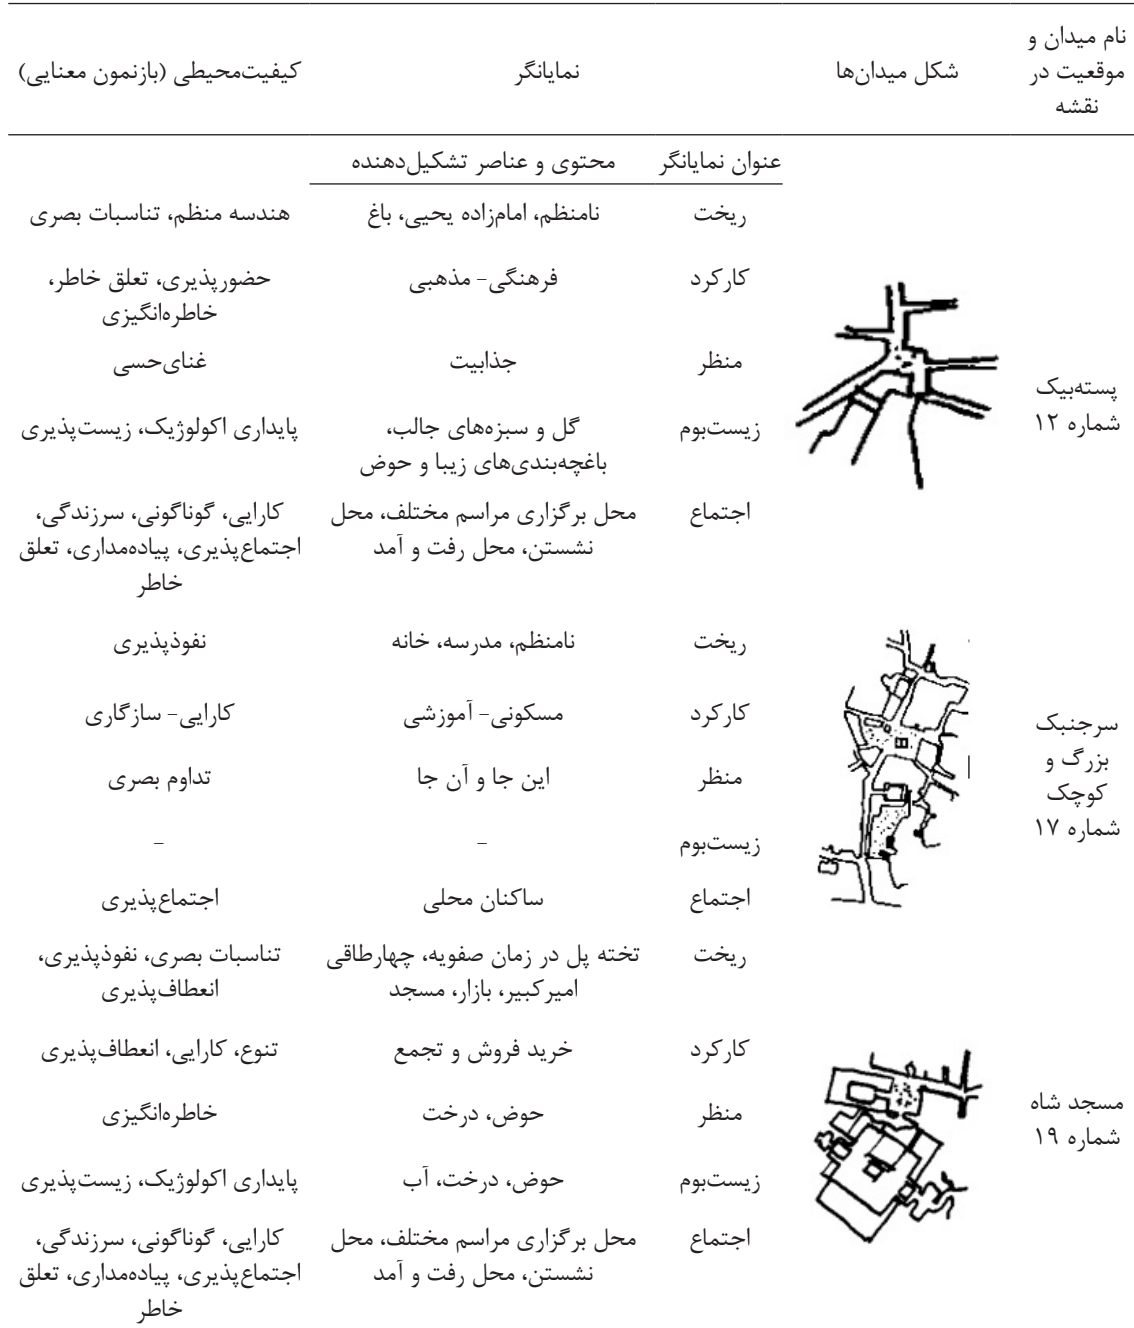 نام میدان و
موقعیت در
نقشه
شکل میدان‌ها
نمایانگر
کیفیت‌محیطی (بازنمون معنایی)
عنوان نمایانگر
محتوی و عناصر تشکیل‌دهنده
پسته‌بیک
شماره ۱۲
ریخت
نامنظم، امامزاده یحیی، باغ
هندسه منظم، تناسبات بصری
کارکرد
فرهنگی- مذهبی
حضورپذیری، تعلق خاطر،
خاطره‌انگیزی
منظر
جذابیت
غنای‌حسی
زیست‌بوم
گل و سبزه‌های جالب،
باغچه‌بندی‌های زیبا و حوض
پایداری اکولوژیک، زیست‌پذیری
اجتماع
محل برگزاری مراسم مختلف، محل
نشستن، محل رفت و آمد
کارایی، گوناگونی، سرزندگی،
اجتماع‌پذیری، پیاده‌مداری، تعلق
خاطر
سرجنبک
بزرگ و
کوچک
شماره ۱۷
ریخت
نامنظم، مدرسه، خانه
نفوذپذیری
کارکرد
مسکونی- آموزشی
کارایی- سازگاری
منظر
این جا و آن جا
تداوم بصری
زیست‌بوم
-
-
اجتماع
ساکنان محلی
اجتماع‌پذیری
مسجد شاه
شماره ۱۹
ریخت
تخته پل در زمان صفویه، چهارطاقی
امیرکبیر، بازار، مسجد
تناسبات بصری، نفوذپذیری،
انعطاف‌پذیری
کارکرد
خرید فروش و تجمع
تنوع، کارایی، انعطاف‌پذیری
منظر
حوض، درخت
خاطره‌انگیزی
زیست‌بوم
حوض، درخت، آب
پایداری اکولوژیک، زیست‌پذیری
اجتماع
محل برگزاری مراسم مختلف، محل
نشستن، محل رفت و آمد
کارایی، گوناگونی، سرزندگی،
اجتماع‌پذیری، پیاده‌مداری، تعلق
خاطر